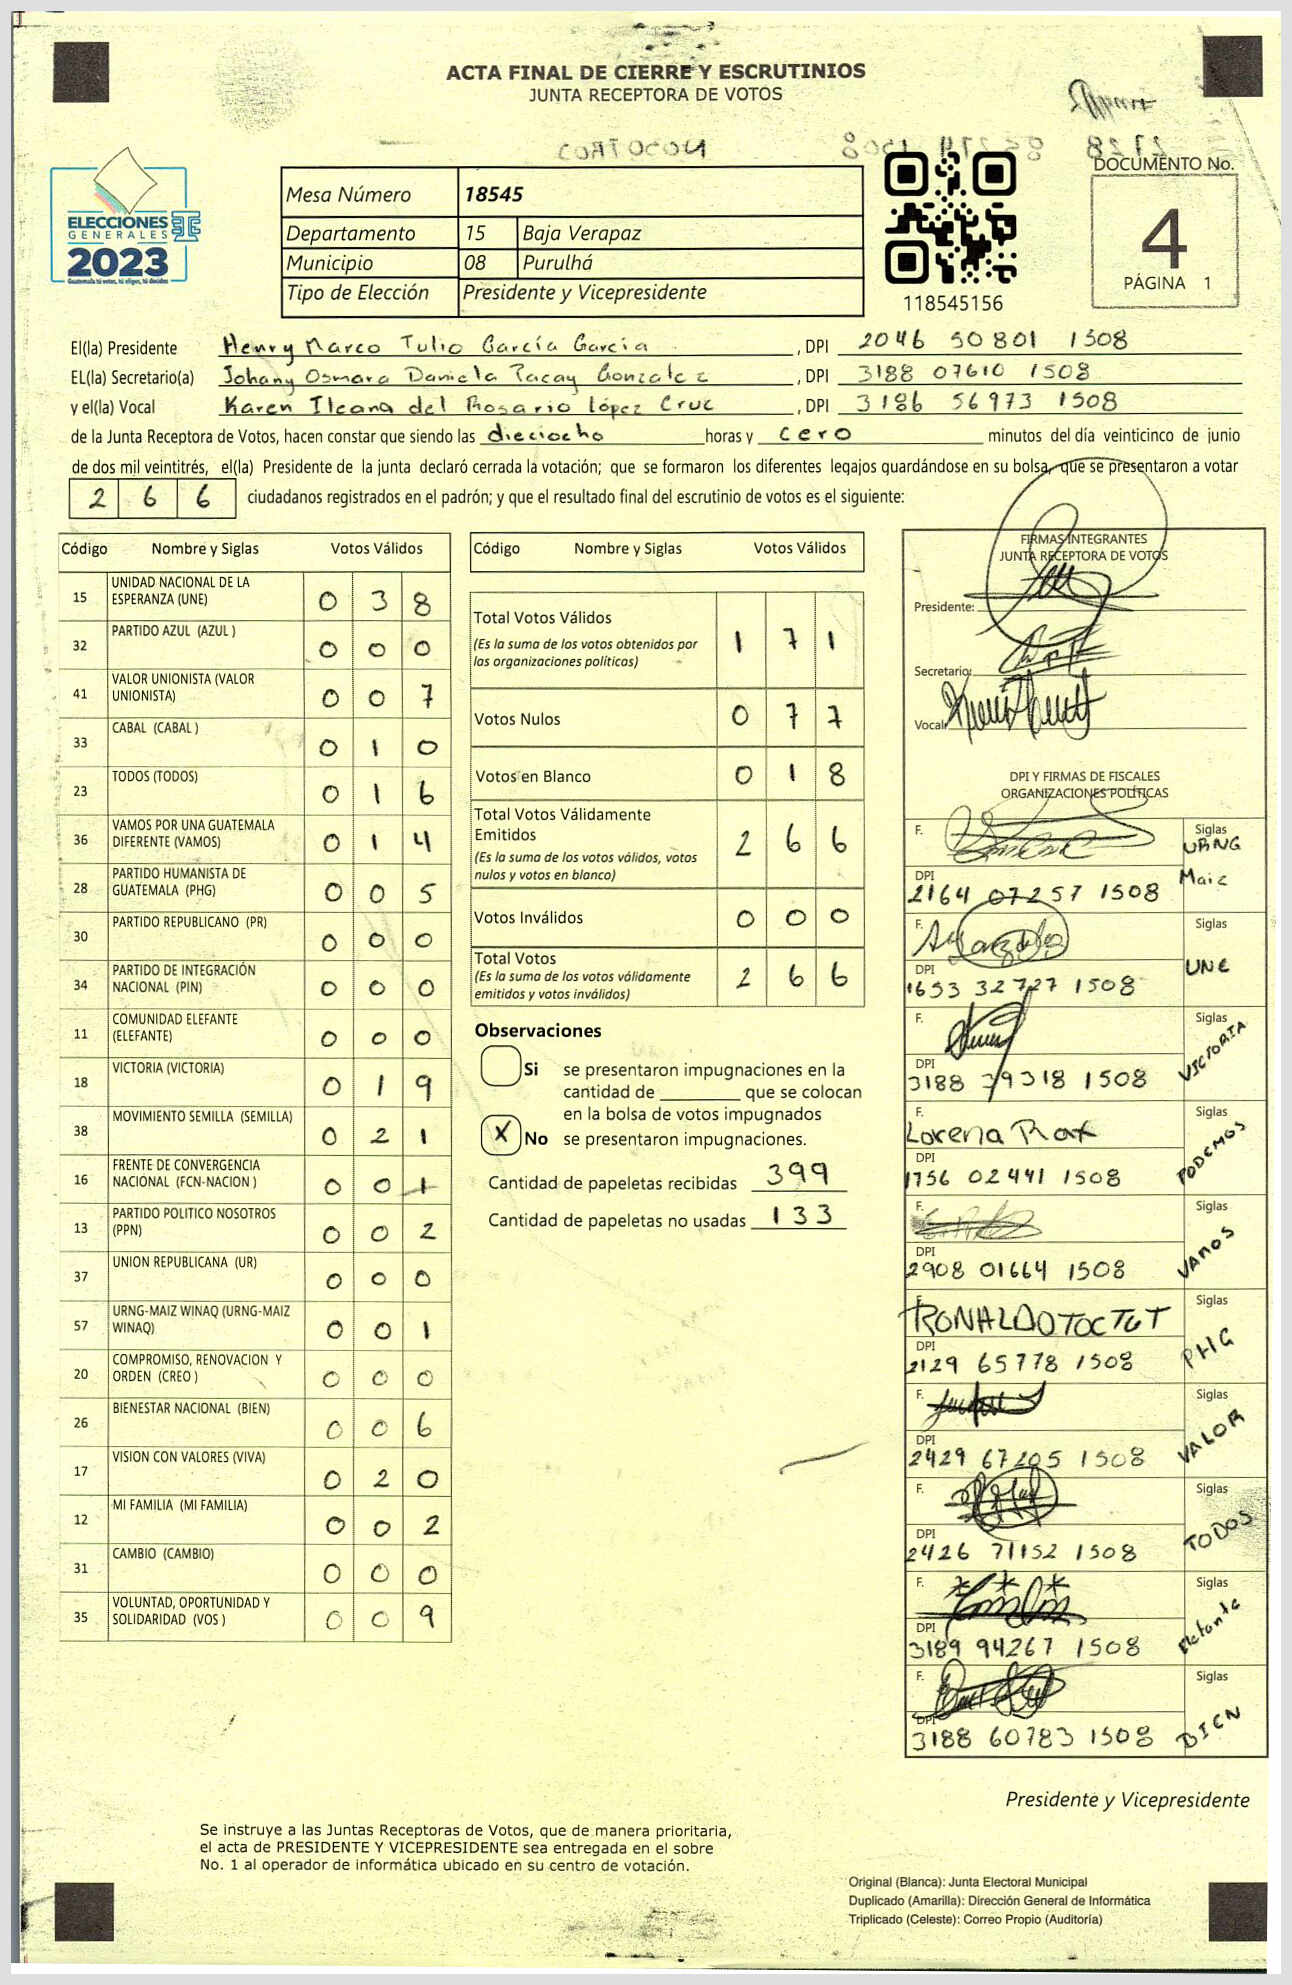 ACTA FINAL DE CIERRE Y ESCRUTINIOS
JUNTA RECEPTORA DE VOTOS
ELECCIONES
GENERALES
2023
Guatemala tú votas, tú eliges, tú decides
Mesa Número 18545
Departamento 15 Baja Verapaz
Municipio 08 Purulhá
Tipo de Elección Presidente y Vicepresidente
118545156
DOCUMENTO No.
4
PÁGINA 1
El(la) Presidente Henry Marco Tulio García García, DPI 2046 50801 1508
EL(la) Secretario(a) Johany Osmara Daniela Pacay Gonzalez, DPI 3188 07610 1508
y el(la) Vocal Karen Ileana del Rosario López Cruz, DPI 3186 56973 1508
de la Junta Receptora de Votos, hacen constar que siendo las dieciocho horas y cero minutos del día veinticinco de junio
de dos mil veintitrés, el(la) Presidente de la junta declaró cerrada la votación; que se formaron los diferentes legajos guardándose en su bolsa, que se presentaron a votar
2 6 6 ciudadanos registrados en el padrón; y que el resultado final del escrutinio de votos es el siguiente:
Código Nombre y Siglas Votos Válidos
15 UNIDAD NACIONAL DE LA ESPERANZA (UNE) 0 3 8
32 PARTIDO AZUL (AZUL ) 0 0 0
41 VALOR UNIONISTA (VALOR UNIONISTA) 0 0 7
33 CABAL (CABAL ) 0 1 0
23 TODOS (TODOS) 0 1 6
36 VAMOS POR UNA GUATEMALA DIFERENTE (VAMOS) 0 1 4
28 PARTIDO HUMANISTA DE GUATEMALA (PHG) 0 0 5
30 PARTIDO REPUBLICANO (PR) 0 0 0
34 PARTIDO DE INTEGRACIÓN NACIONAL (PIN) 0 0 0
11 COMUNIDAD ELEFANTE (ELEFANTE) 0 0 0
18 VICTORIA (VICTORIA) 0 1 9
38 MOVIMIENTO SEMILLA (SEMILLA) 0 2 1
16 FRENTE DE CONVERGENCIA NACIONAL (FCN-NACION ) 0 0 1
13 PARTIDO POLITICO NOSOTROS (PPN) 0 0 2
37 UNION REPUBLICANA (UR) 0 0 0
57 URNG-MAIZ WINAQ (URNG-MAIZ WINAQ) 0 0 1
20 COMPROMISO, RENOVACION Y ORDEN (CREO ) 0 0 0
26 BIENESTAR NACIONAL (BIEN) 0 0 6
17 VISION CON VALORES (VIVA) 0 2 0
12 MI FAMILIA (MI FAMILIA) 0 0 2
31 CAMBIO (CAMBIO) 0 0 0
35 VOLUNTAD, OPORTUNIDAD Y SOLIDARIDAD (VOS ) 0 0 9
Código Nombre y Siglas Votos Válidos
Total Votos Válidos 1 7 1
(Es la suma de los votos obtenidos por
las organizaciones políticas)
Votos Nulos 0 7 7
Votos en Blanco 0 1 8
Total Votos Válidamente
Emitidos 2 6 6
(Es la suma de los votos válidos, votos
nulos y votos en blanco)
Votos Inválidos 0 0 0
Total Votos 2 6 6
(Es la suma de los votos válidamente
emitidos y votos inválidos)
Observaciones
Si se presentaron impugnaciones en la
cantidad de ________ que se colocan
en la bolsa de votos impugnados
X No se presentaron impugnaciones.
Cantidad de papeletas recibidas 399
Cantidad de papeletas no usadas 133
FIRMAS INTEGRANTES
JUNTA RECEPTORA DE VOTOS
Presidente:
Secretario:
Vocal:
DPI Y FIRMAS DE FISCALES
ORGANIZACIONES POLÍTICAS
F. Siglas URNG Maiz
DPI 2164 07257 1508
F. Siglas UNE
DPI 1653 32727 1508
F. Siglas VICTORIA
DPI 3188 39318 1508
F. Lorena Rax Siglas PODEMOS
DPI 1756 02441 1508
F. Siglas VAMOS
DPI 2908 01664 1508
F. RONALDO TOC TUT Siglas PHG
DPI 2129 65778 1508
F. Siglas VALOR
DPI 2429 67205 1508
F. Siglas TODOS
DPI 2426 71152 1508
F. Siglas
DPI 3189 94267 1508
F. Siglas BIEN
DPI 3188 60783 1508
Presidente y Vicepresidente
Se instruye a las Juntas Receptoras de Votos, que de manera prioritaria,
el acta de PRESIDENTE Y VICEPRESIDENTE sea entregada en el sobre
No. 1 al operador de informática ubicado en su centro de votación.
Original (Blanca): Junta Electoral Municipal
Duplicado (Amarilla): Dirección General de Informática
Triplicado (Celeste): Correo Propio (Auditoría)